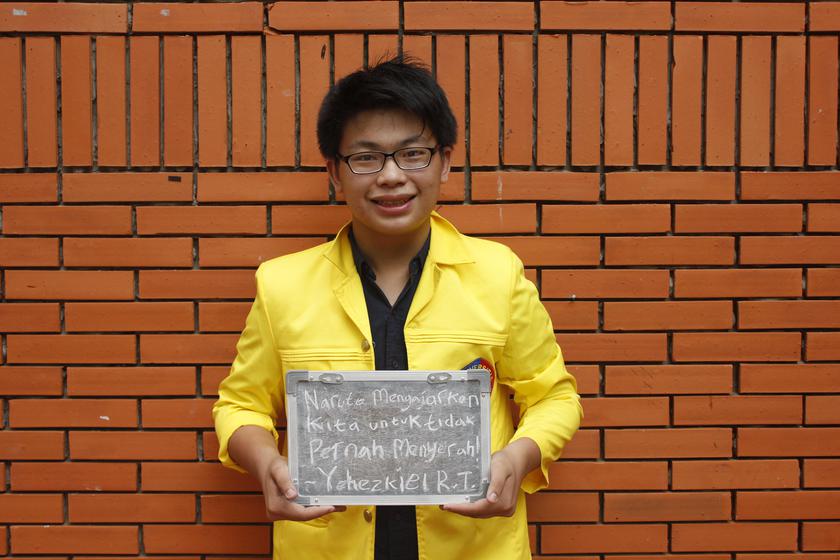 Naruto Mengajarkan
Kita untuk tidak
Pernah Menyerah!
- Yehezkiel R.T.